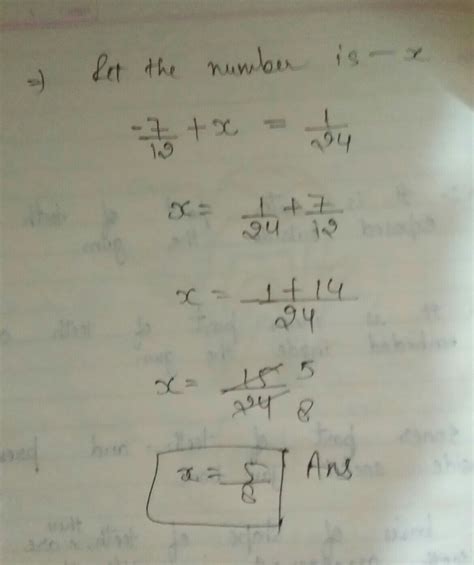 ⇒ Let the number is – x
-7/12 + x = 1/24
x = 1/24 + 7/12
x = 1 + 14/24
x = 15/24 5/8
x = 5/8 Ans